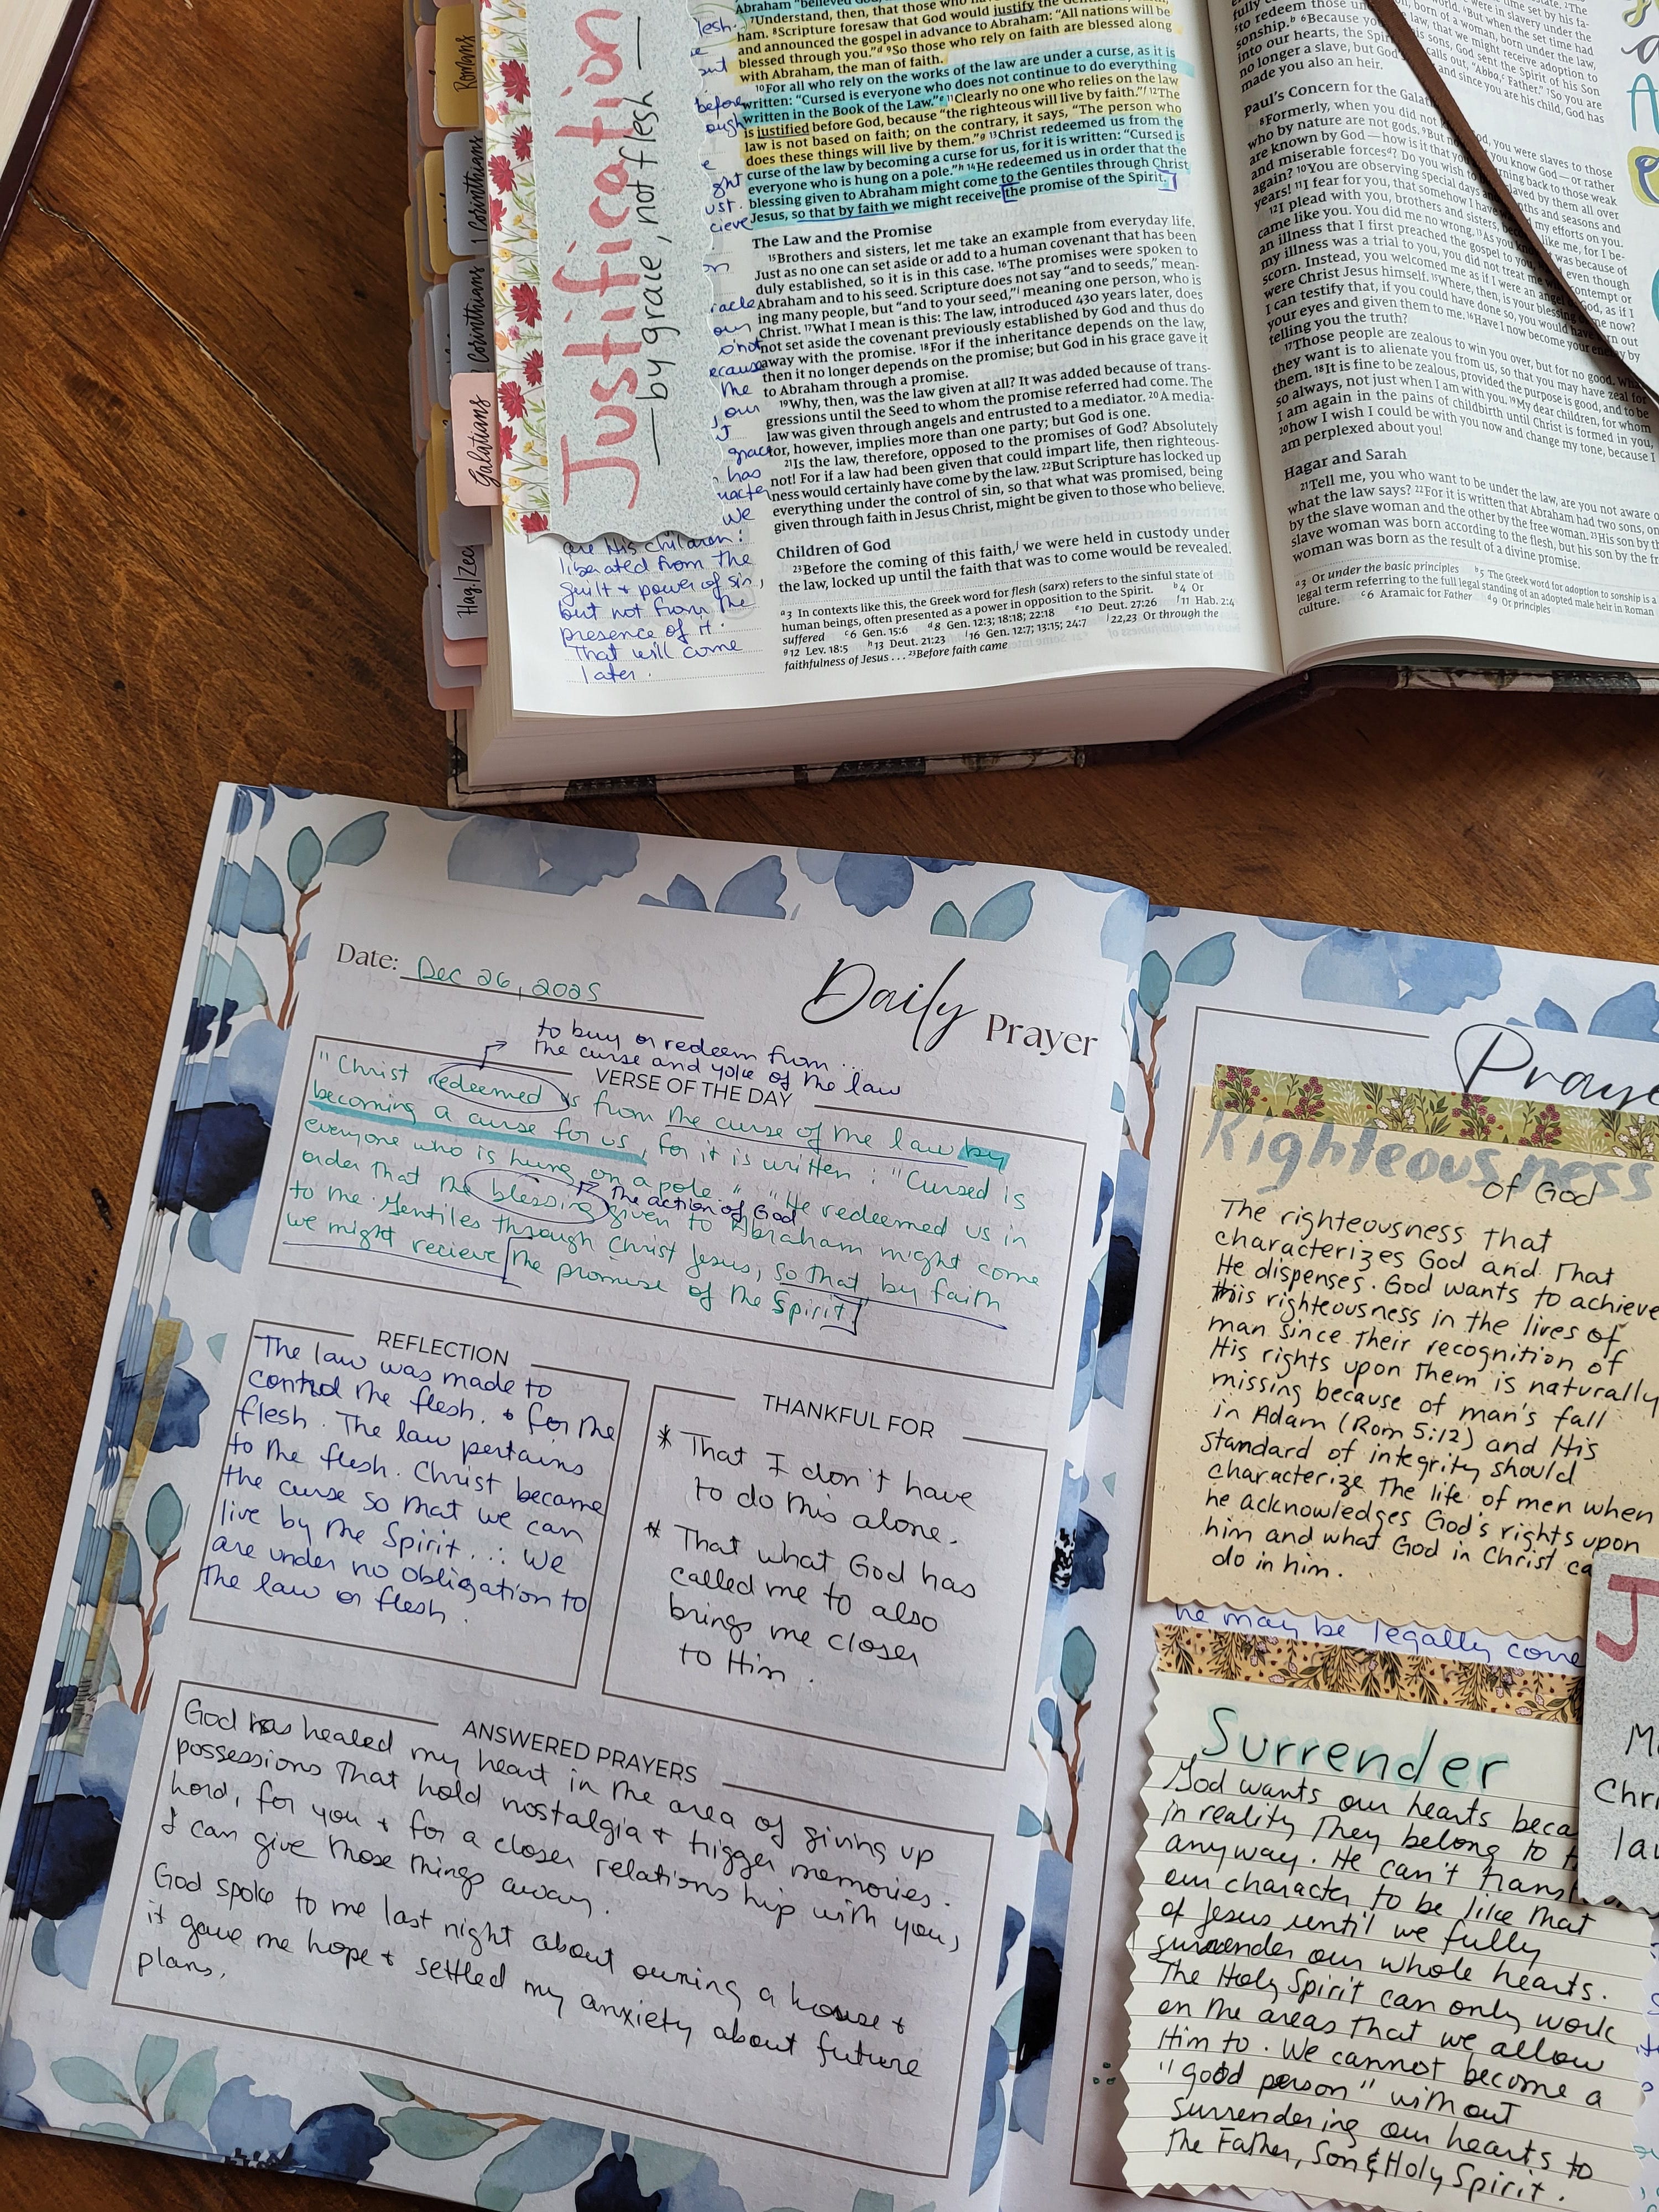 Romans
1 Corinthians
Corinthians
Galatians
Hag./Zec
Justification
— by grace, not flesh —
lesh.
before
ough
e
ght
ust.
cieve
racle
our
o not
ecause
me
our
grace
has
racter
we
are His children:
liberated from the
guilt + power of sin,
but not from the
presence of it.
That will come
later.
Abraham "believed God,
⁷Understand, then, that those who have
ham. ⁸Scripture foresaw that God would justify the Gentiles by faith,
and announced the gospel in advance to Abraham: "All nations will be
blessed through you."ᵈ ⁹So those who rely on faith are blessed along
with Abraham, the man of faith.
¹⁰For all who rely on the works of the law are under a curse, as it is
written: "Cursed is everyone who does not continue to do everything
written in the Book of the Law."ᵉ ¹¹Clearly no one who relies on the law
is justified before God, because "the righteous will live by faith."ᶠ ¹²The
law is not based on faith; on the contrary, it says, "The person who
does these things will live by them."ᵍ ¹³Christ redeemed us from the
curse of the law by becoming a curse for us, for it is written: "Cursed is
everyone who is hung on a pole."ʰ ¹⁴He redeemed us in order that the
blessing given to Abraham might come to the Gentiles through Christ
Jesus, so that by faith we might receive the promise of the Spirit.
The Law and the Promise
¹⁵Brothers and sisters, let me take an example from everyday life.
Just as no one can set aside or add to a human covenant that has been
duly established, so it is in this case. ¹⁶The promises were spoken to
Abraham and to his seed. Scripture does not say "and to seeds," mean-
ing many people, but "and to your seed,"ⁱ meaning one person, who is
Christ. ¹⁷What I mean is this: The law, introduced 430 years later, does
not set aside the covenant previously established by God and thus do
away with the promise. ¹⁸For if the inheritance depends on the law,
then it no longer depends on the promise; but God in his grace gave it
to Abraham through a promise.
¹⁹Why, then, was the law given at all? It was added because of trans-
gressions until the Seed to whom the promise referred had come. The
law was given through angels and entrusted to a mediator. ²⁰A media-
tor, however, implies more than one party; but God is one.
²¹Is the law, therefore, opposed to the promises of God? Absolutely
not! For if a law had been given that could impart life, then righteous-
ness would certainly have come by the law. ²²But Scripture has locked up
everything under the control of sin, so that what was promised, being
given through faith in Jesus Christ, might be given to those who believe.
Children of God
²³Before the coming of this faith,ʲ we were held in custody under
the law, locked up until the faith that was to come would be revealed.
ᵃ3 In contexts like this, the Greek word for flesh (sarx) refers to the sinful state of
human beings, often presented as a power in opposition to the Spirit. ᵇ4 Or
suffered ᶜ6 Gen. 15:6 ᵈ8 Gen. 12:3; 18:18; 22:18 ᵉ10 Deut. 27:26 ᶠ11 Hab. 2:4
ᵍ12 Lev. 18:5 ʰ13 Deut. 21:23 ⁱ16 Gen. 12:7; 13:15; 24:7 ʲ22,23 Or through the
faithfulness of Jesus . . . ²³Before faith came
to redeem those
sonship.ᵇ ⁶Because
into our hearts, the Spirit
no longer a slave, but God
made you also an heir.
Paul's Concern for the Galat
⁸Formerly, when you did not
who by nature are not gods. ⁹But
are known by God—how is it that
and miserable forcesᵈ? Do you wish to
again? ¹⁰You are observing special days
years! ¹¹I fear for you, that somehow I have
¹²I plead with you, brothers and sisters,
came like you. You did me no wrong. ¹³As you
an illness that I first preached the gospel to you,
my illness was a trial to you, you did not treat me
scorn. Instead, you welcomed me as if I were an angel
were Christ Jesus himself. ¹⁵Where, then, is your blessing
I can testify that, if you could have done so, you would have torn out
your eyes and given them to me. ¹⁶Have I now become your enemy by
telling you the truth?
¹⁷Those people are zealous to win you over, but for no good. What
they want is to alienate you from us, so that you may have zeal for
them. ¹⁸It is fine to be zealous, provided the purpose is good, and to be
so always, not just when I am with you. ¹⁹My dear children, for whom
I am again in the pains of childbirth until Christ is formed in you,
²⁰how I wish I could be with you now and change my tone, because I
am perplexed about you!
Hagar and Sarah
²¹Tell me, you who want to be under the law, are you not aware of
what the law says? ²²For it is written that Abraham had two sons, on
by the slave woman and the other by the free woman. ²³His son by th
slave woman was born according to the flesh, but his son by the fr
woman was born as the result of a divine promise.
ᵃ3 Or under the basic principles ᵇ5 The Greek word for adoption to sonship is a
legal term referring to the full legal standing of an adopted male heir in Roman
culture. ᶜ6 Aramaic for Father ᵈ9 Or principles
Date: Dec 26, 2025
Daily Prayer
to buy or redeem from...
the curse and yoke of the law
VERSE OF THE DAY
"Christ redeemed us from the curse of the law by
becoming a curse for us, for it is written: "Cursed is
everyone who is hung on a pole." "He redeemed us in
the action of God
order that the blessing given to Abraham might come
to the Gentiles through Christ Jesus, so that by faith
we might recieve the promise of the Spirit"
REFLECTION
The law was made to
control the flesh. & for the
flesh. The law pertains
to the flesh. Christ became
the curse so that we can
live by the Spirit. ∴ we
are under no obligation to
the law or flesh.
THANKFUL FOR
* That I don't have
to do this alone.
* That what God has
called me to also
brings me closer
to Him.
ANSWERED PRAYERS
God has healed my heart in the area of giving up
possessions that hold nostalgia & trigger memories.
Lord, for you & for a closer relationship with you,
I can give those things away.
God spoke to me last night about owning a house &
it gave me hope & settled my anxiety about future
plans.
Praye
Righteousness
of God
The righteousness that
characterizes God and that
He dispenses. God wants to achieve
this righteousness in the lives of
man since their recognition of
His rights upon them is naturally
missing because of man's fall
in Adam (Rom 5:12) and His
standard of integrity should
characterize the life of men when
he acknowledges God's rights upon
him and what God in Christ ca
do in him.
he may be legally come
Surrender
God wants our hearts beca
in reality they belong to
anyway. He can't transf
our character to be like that
of Jesus until we fully
surrender our whole hearts.
The Holy Spirit can only work
on the areas that we allow
Him to. We cannot become a
"good person" without
surrendering our hearts to
the Father, Son & Holy Spirit.
J
Chri
la